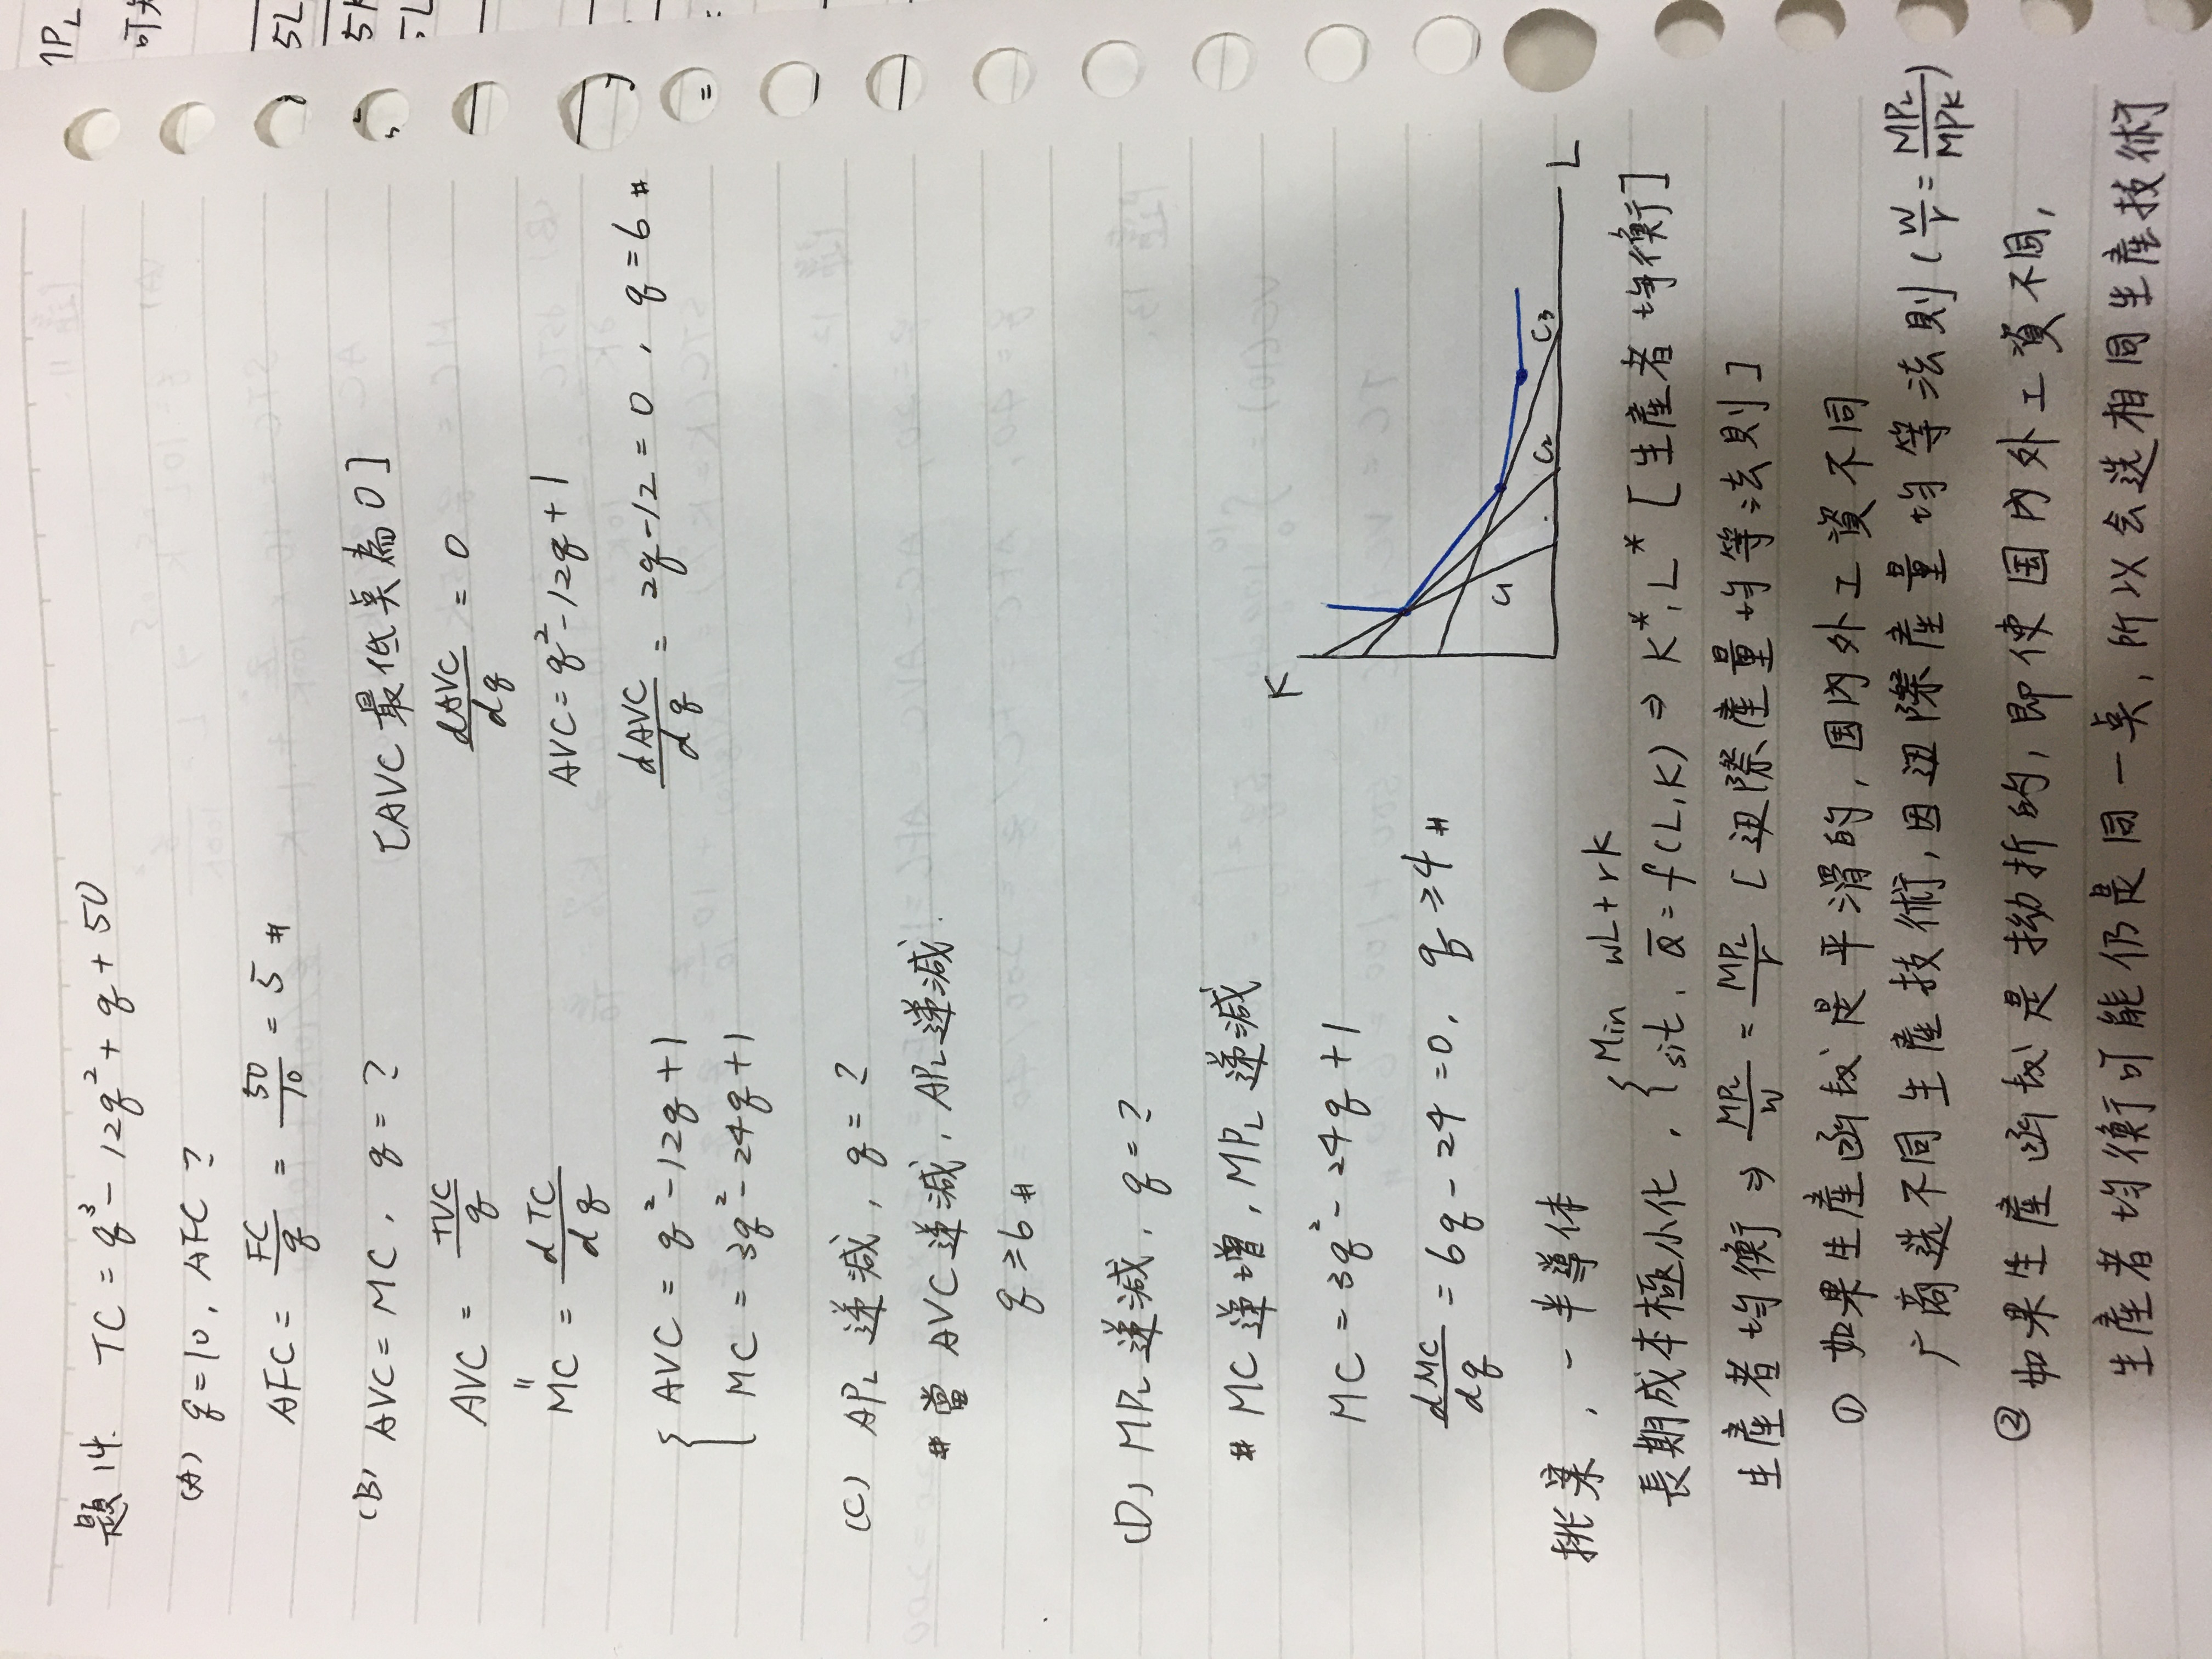 題14. TC = q³ - 12q² + q + 50
(A) q = 10, AFC ?
AFC = FC/q = 50/10 = 5 #
(B) AVC = MC, q = ?
AVC = TVC/q
"
MC = dTC/dq
{ AVC = q² - 12q + 1
MC = 3q² - 24q + 1
[AVC 最低点為 0]
dAVC/dq = 0
AVC = q² - 12q + 1
dAVC/dq = 2q - 12 = 0, q = 6 #
(C) APL 递減, q = ?
# 當 AVC 递減, APL 递減.
q ≥ 6 #
(D) MPL 递減, q = ?
# MC 递增, MPL 递減
MC = 3q² - 24q + 1
dMC/dq = 6q - 24 = 0, q ≥ 4 #
K
C1
C2
C3
L
挑案, - 半導体
長期成本極小化, { Min wL + rK
s.t. Q̄ = f(L,K) ⇒ K*, L* [生產者均衡]
生產者均衡 ⇒ MPL/w = MPL/r [边際產量均等法則]
① 如果生產函数是平滑的, 国內外工資不同
广商选不同生產技術, 因边際產量均等法則 (w/r = MPL/MPK)
② 如果生產函数是拗折的, 即使国內外工資不同,
生產者均衡可能仍是同一点, 所以会选相同生產技術
MPL
可知
5L